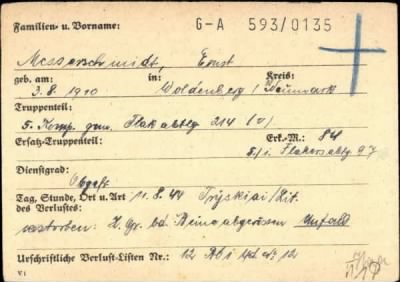 Familien- u. Vorname: G-A 593/0135
Messerschmidt, Ernst
geb. am: in: Kreis:
3.8.1910 Woldenberg / Neumark
Truppenteil:
5. Komp. gem. Flakabtlg 214 (v)
Ersatz-Truppenteil: Erk.-M.: 84
5./ Flakersabtg 97
Dienstgrad:
Obgefr
Tag, Stunde, Ort u. Art 11.8.44 Tryskiai/Lit.
des Verlustes:
verstorben: H. Gr. bd. Beine abgerissen Unfall
Urschriftliche Verlust-Listen Nr.: 12
V1